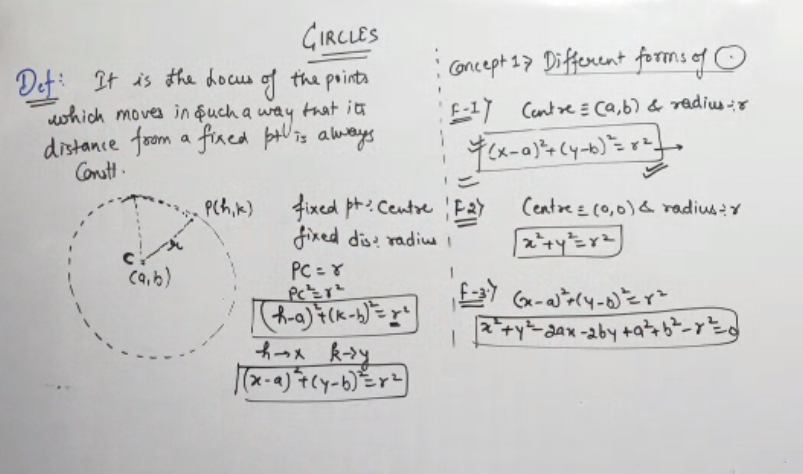 CIRCLES
Def: It is the Locus of the points
which moves in such a way that its
distance from a fixed pt is always
Constt.
P(h,k)
r
C
(a,b)
fixed pt: Centre
fixed dis: radius
PC = r
PC²=r²
(h-a)²+(k-b)²=r²
h→x k→y
(x-a)²+(y-b)²=r²
Concept 1> Different forms of ⊙
F-1> Centre ≡ (a,b) & radius:r
*(x-a)²+(y-b)²=r²
F-2> Centre ≡ (0,0) & radius:r
x²+y²=r²
F-3> (x-a)²+(y-b)²=r²
x²+y²-2ax-2by+a²+b²-r²=0